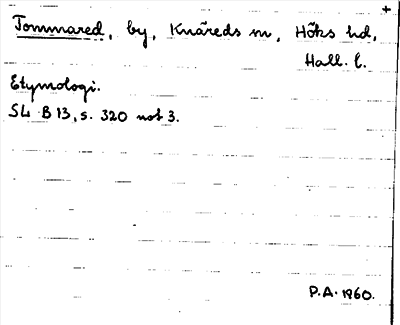 +
Tommared, by, Knäreds sn, Höks hd,
Hall. l.
Etymologi.
SL B 13, s. 320 not 3.
P.A. 1960.